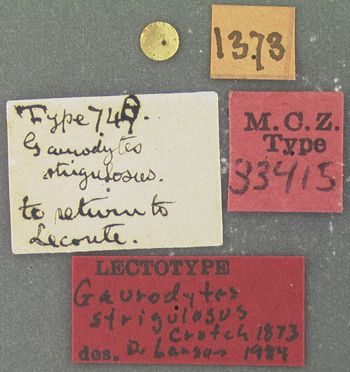 1373
Type 748.
Gaurodytes
strigulosus.
to return to
Leconte.
M. C. Z.
Type
33415
LECTOTYPE
Gaurodytes
strigulosus
Crotch 1873
des. D. Larson 1984